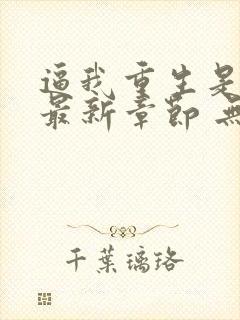 逼我重生是
最新章節 無
千葉璃珞